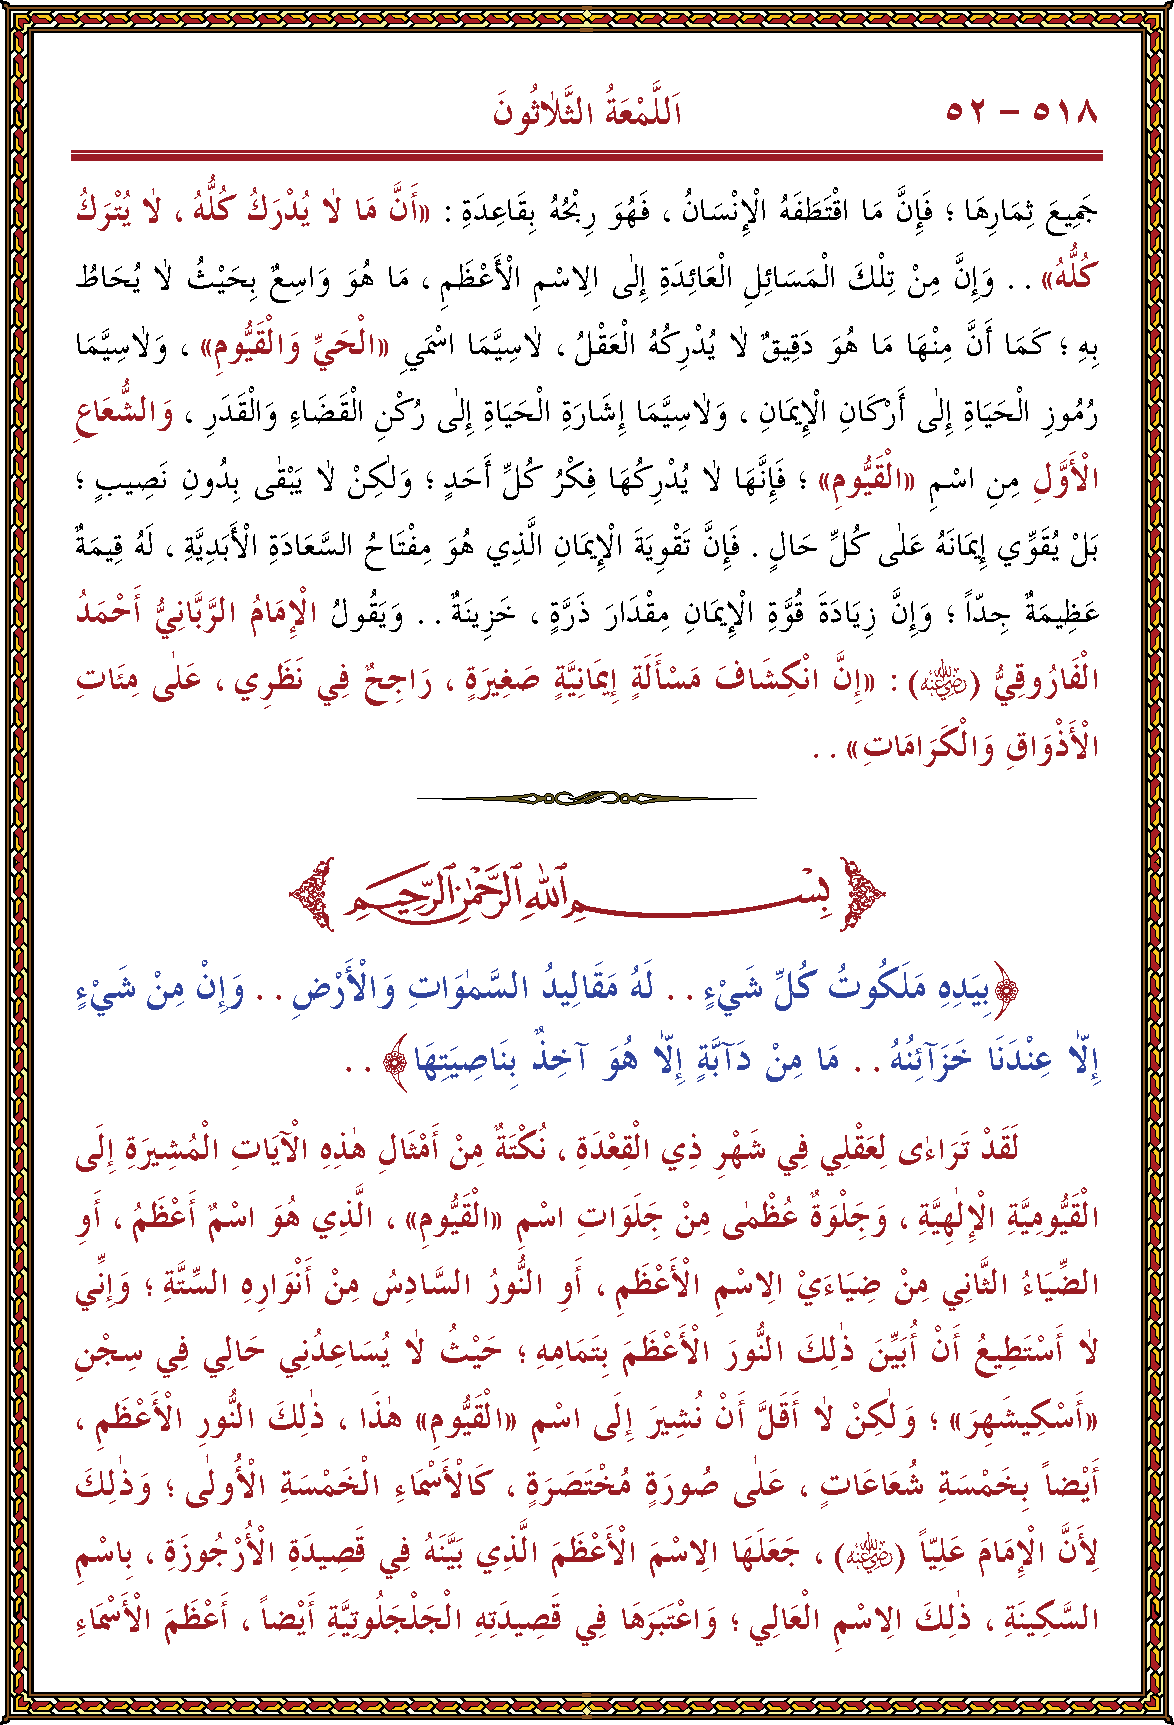 ٥١٨ – ٥٢
اَللَّمْعَةُ الثَّلَاثُونَ
جَمِيعَ ثِمَارِهَا ؛ فَإِنَّ مَا اقْتَطَفَهُ الْإِنْسَانُ ، فَهُوَ رِبْحُهُ بِقَاعِدَةِ : «أَنَّ مَا لَا يُدْرَكُ كُلُّهُ ، لَا يُتْرَكُ
كُلُّهُ» . . وَإِنَّ مِنْ تِلْكَ الْمَسَائِلِ الْعَائِدَةِ إِلَى الِاسْمِ الْأَعْظَمِ ، مَا هُوَ وَاسِعٌ بِحَيْثُ لَا يُحَاطُ
بِهِ ؛ كَمَا أَنَّ مِنْهَا مَا هُوَ دَقِيقٌ لَا يُدْرِكُهُ الْعَقْلُ ، لَاسِيَّمَا اسْمَيِ «الْحَيِّ وَالْقَيُّومِ» ، وَلَاسِيَّمَا
رُمُوزِ الْحَيَاةِ إِلَى أَرْكَانِ الْإِيمَانِ ، وَلَاسِيَّمَا إِشَارَةِ الْحَيَاةِ إِلَى رُكْنِ الْقَضَاءِ وَالْقَدَرِ ، وَالشُّعَاعِ
الْأَوَّلِ مِنِ اسْمِ «الْقَيُّومِ» ؛ فَإِنَّهَا لَا يُدْرِكُهَا فِكْرُ كُلِّ أَحَدٍ ؛ وَلَكِنْ لَا يَبْقَى بِدُونِ نَصِيبٍ ؛
بَلْ يُقَوِّي إِيمَانَهُ عَلَى كُلِّ حَالٍ . فَإِنَّ تَقْوِيَةَ الْإِيمَانِ الَّذِي هُوَ مِفْتَاحُ السَّعَادَةِ الْأَبَدِيَّةِ ، لَهُ قِيمَةٌ
عَظِيمَةٌ جِدّاً ؛ وَإِنَّ زِيَادَةَ قُوَّةِ الْإِيمَانِ مِقْدَارَ ذَرَّةٍ ، خَزِينَةٌ . . وَيَقُولُ الْإِمَامُ الرَّبَّانِيُّ أَحْمَدُ
الْفَارُوقِيُّ (رضي الله عنه) : «إِنَّ انْكِشَافَ مَسْأَلَةٍ إِيمَانِيَّةٍ صَغِيرَةٍ ، رَاجِحٌ فِي نَظَرِي ، عَلَى مِئَاتِ
الْأَذْوَاقِ وَالْكَرَامَاتِ» . .
بِسْمِ اللهِ الرَّحْمٰنِ الرَّحِيمِ
﴿بِيَدِهِ مَلَكُوتُ كُلِّ شَيْءٍ . . لَهُ مَقَالِيدُ السَّمٰوَاتِ وَالْأَرْضِ . . وَإِنْ مِنْ شَيْءٍ
إِلَّا عِنْدَنَا خَزَآئِنُهُ . . مَا مِنْ دَآبَّةٍ إِلَّا هُوَ آخِذٌ بِنَاصِيَتِهَا﴾ . .
لَقَدْ تَرَاءٰى لِعَقْلِي فِي شَهْرِ ذِي الْقِعْدَةِ ، نُكْتَةٌ مِنْ أَمْثَالِ هٰذِهِ الْآيَاتِ الْمُشِيرَةِ إِلَى
الْقَيُّومِيَّةِ الْإِلٰهِيَّةِ ، وَجَلْوَةٌ عُظْمٰى مِنْ جَلَوَاتِ اسْمِ «الْقَيُّومِ» ، الَّذِي هُوَ اسْمٌ أَعْظَمُ ، أَوِ
الضِّيَاءُ الثَّانِي مِنْ ضِيَاءَيْ الِاسْمِ الْأَعْظَمِ ، أَوِ النُّورُ السَّادِسُ مِنْ أَنْوَارِهِ السِّتَّةِ ؛ وَإِنِّي
لَا أَسْتَطِيعُ أَنْ أُبَيِّنَ ذٰلِكَ النُّورَ الْأَعْظَمَ بِتَمَامِهِ ؛ حَيْثُ لَا يُسَاعِدُنِي حَالِي فِي سِجْنِ
«أَسْكِيشَهِرَ» ؛ وَلٰكِنْ لَا أَقَلَّ أَنْ نُشِيرَ إِلَى اسْمِ «الْقَيُّومِ» هٰذَا ، ذٰلِكَ النُّورِ الْأَعْظَمِ ،
أَيْضاً بِخَمْسَةِ شُعَاعَاتٍ ، عَلَى صُورَةٍ مُخْتَصَرَةٍ ، كَالْأَسْمَاءِ الْخَمْسَةِ الْأُولَى ؛ وَذٰلِكَ
لِأَنَّ الْإِمَامَ عَلِيّاً (رضي الله عنه) ، جَعَلَهَا الِاسْمَ الْأَعْظَمَ الَّذِي بَيَّنَهُ فِي قَصِيدَةِ الْأُرْجُوزَةِ ، بِاسْمِ
السَّكِينَةِ ، ذٰلِكَ الِاسْمِ الْعَالِي ؛ وَاعْتَبَرَهَا فِي قَصِيدَتِهِ الْجَلْجَلُوتِيَّةِ أَيْضاً ، أَعْظَمَ الْأَسْمَاءِ